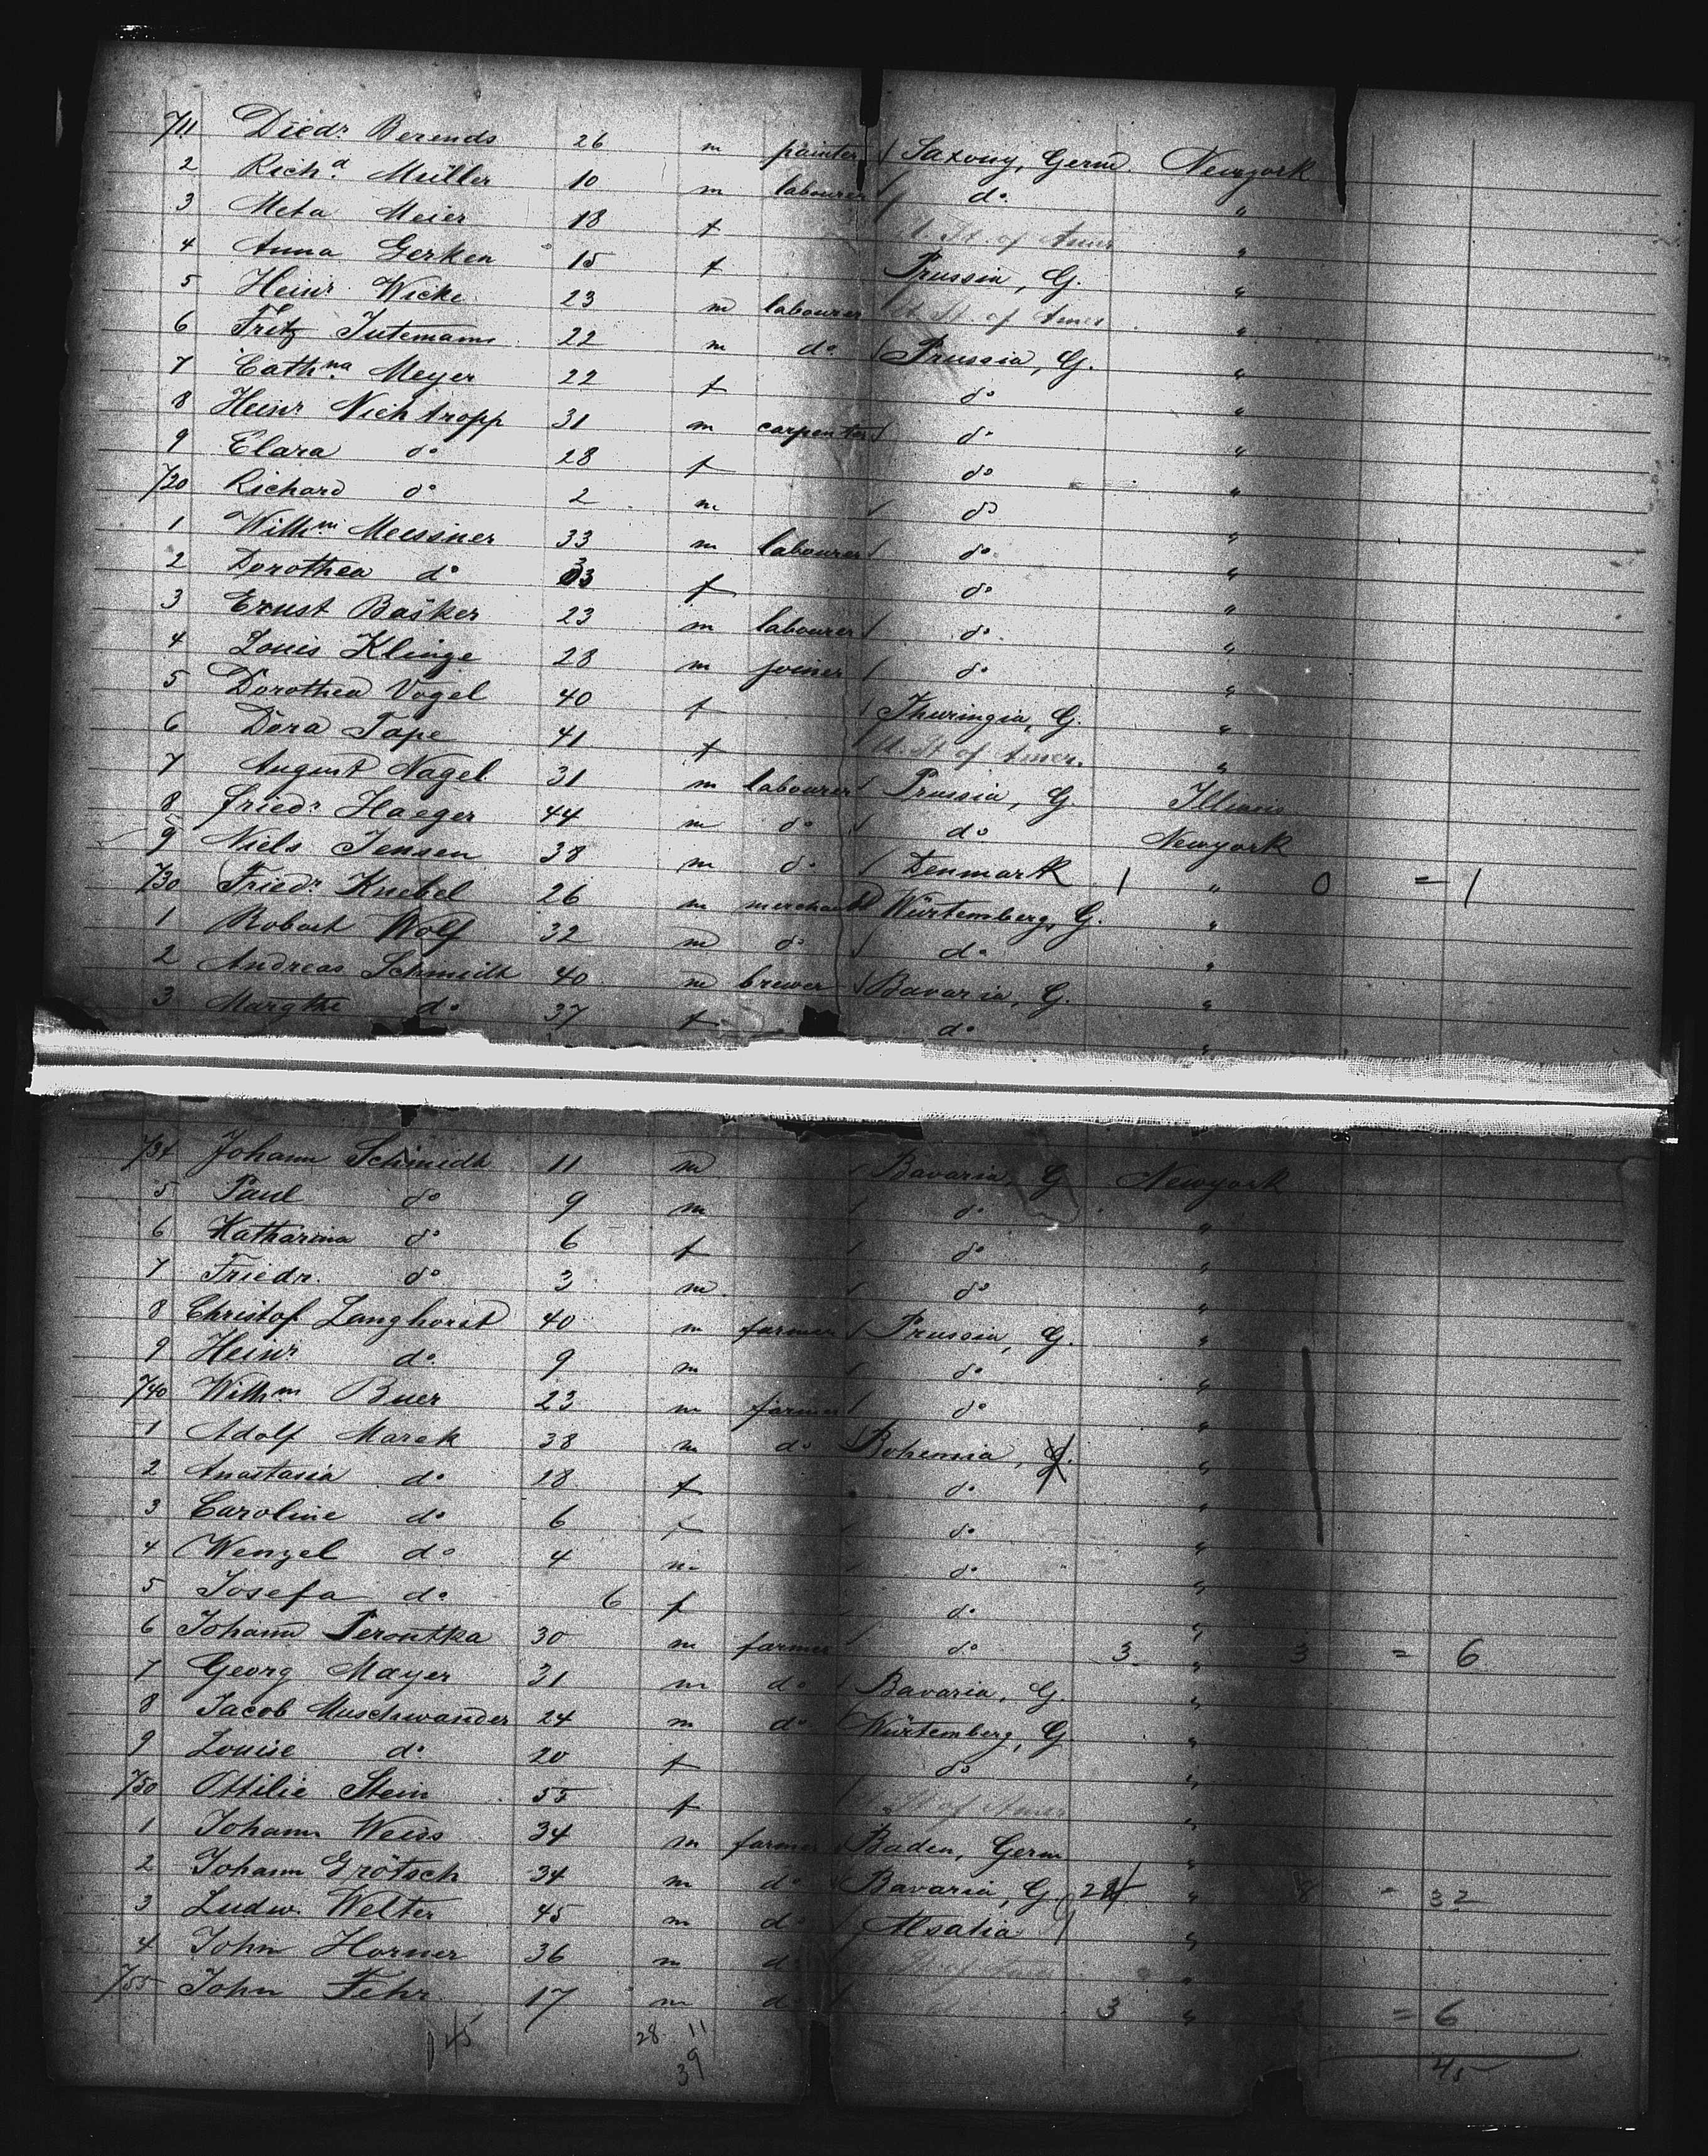 711 Diedr. Berends 26 m painter Saxony, Germ. Newyork
2 Richd. Müller 10 m labourer do. "
3 Meta Meier 18 f U. St. of Amer "
4 Anna Gerken 15 f Prussia, G. "
5 Heinr. Wicke 23 m labourer U. St. of Amer "
6 Fritz Jutemann 22 m do Prussia, G. "
7 Cathna. Meyer 22 f do "
8 Heinr. Nichtropp 31 m carpenter do "
9 Clara do 28 f do "
720 Richard do 2 m do "
1 Wilhm. Meissner 33 m labourer do "
2 Dorothea do 33 f do "
3 Ernst Bäsker 23 m labourer do. "
4 Louis Klinge 28 m joiner do "
5 Dorothea Vogel 40 f Thuringia, G. "
6 Dora Tape 41 f U. St. of Amer. "
7 August Nagel 31 m labourer Prussia, G Illinois
8 Friedr. Haeger 44 m do do Newyork
9 Niels Jensen 38 m do Denmark 1 " 0 = 1
730 Friedr. Knebel 26 m merchant Würtemberg, G. "
1 Robert Wolf 32 m do do. "
2 Andreas Schmidt 40 m brewer Bavaria, G. "
3 Margthe do 37 f do "
734 Johann Schmidt 11 m Bavaria, G Newyork
5 Paul do 9 m do "
6 Katharina do 6 f do "
7 Friedr. do 3 m do "
8 Christof Langhorst 40 m farmer Prussia, G. "
9 Heinr. do. 9 m do "
740 Wilhm. Buer 23 m farmer do "
1 Adolf Marek 38 m do Bohemia, G. "
2 Anastasia do 28 f do "
3 Caroline do 6 f do "
4 Wenzel do 4 m do "
5 Josefa do 6 f do "
6 Johann Perontka 30 m farmer do 3 " 3 = 6
7 Georg Mayer 31 m do Bavaria, G. "
8 Jacob Muschwander 24 m do Würtemberg, G "
9 Louise do 20 f do "
750 Ottilie Stein 55 f St of Amer "
1 Johann Weiss 34 m farmer Baden, Germ "
2 Johann Grötsch 34 m do Bavaria, G. 24 " 8 = 32
3 Ludw. Welter 45 m do Alsatia "
4 John Horner 36 m d St of Amer "
755 John Fehr 17 m d 3 " = 6
45 28 11 45
39